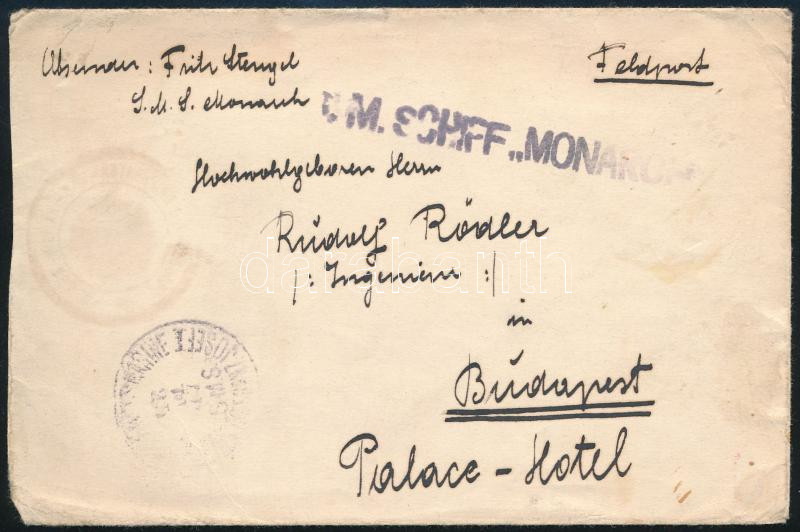 Absender: Fritz Stengel
S. M. S. Monarch
Feldpost
M. SCHIFF „MONARCH
Hochwohlgeboren Herrn
Rudolf Rödler
/: Ingenieur :/
in
Budapest
Palace-Hotel
databanth
MARINE
JOSEF I
S.M.S.